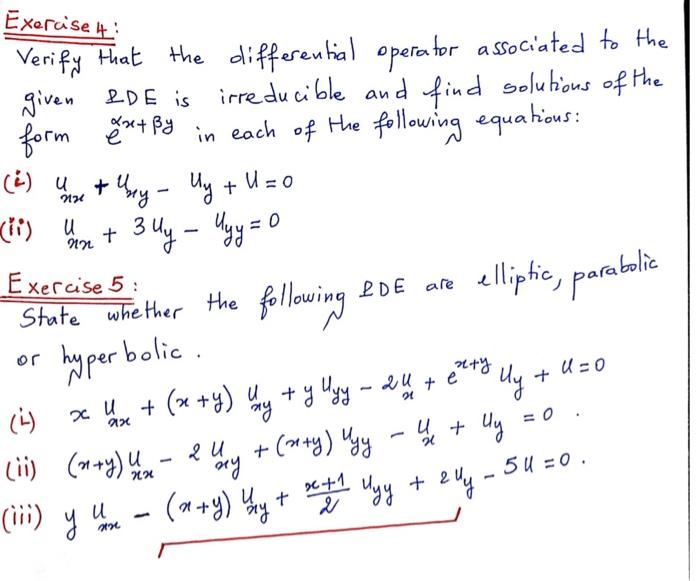 Exercise 4:
Verify that the differential operator associated to the
given PDE is irreducible and find solutions of the
form e^{αx+βy} in each of the following equations:
(i) u_{xx} + u_{xy} - u_y + u = 0
(ii) u_{xx} + 3u_y - u_{yy} = 0
Exercise 5:
State whether the following PDE are elliptic, parabolic
or hyperbolic.
(i) x u_{xx} + (x+y) u_{xy} + y u_{yy} - 2u_x + e^{x+y} u_y + u = 0
(ii) (x+y) u_{xx} - 2u_{xy} + (x+y) u_{yy} - u_x + u_y = 0.
(iii) y u_{xx} - (x+y) u_{xy} + \frac{x+1}{2} u_{yy} + 2u_y - 5u = 0.